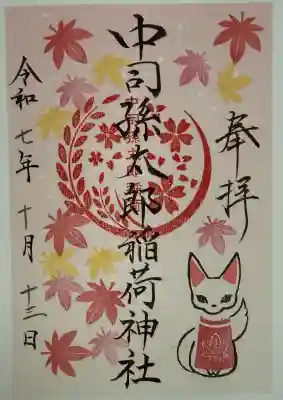 奉拝
中司孫太郎稲荷神社
令和七年十月十三日